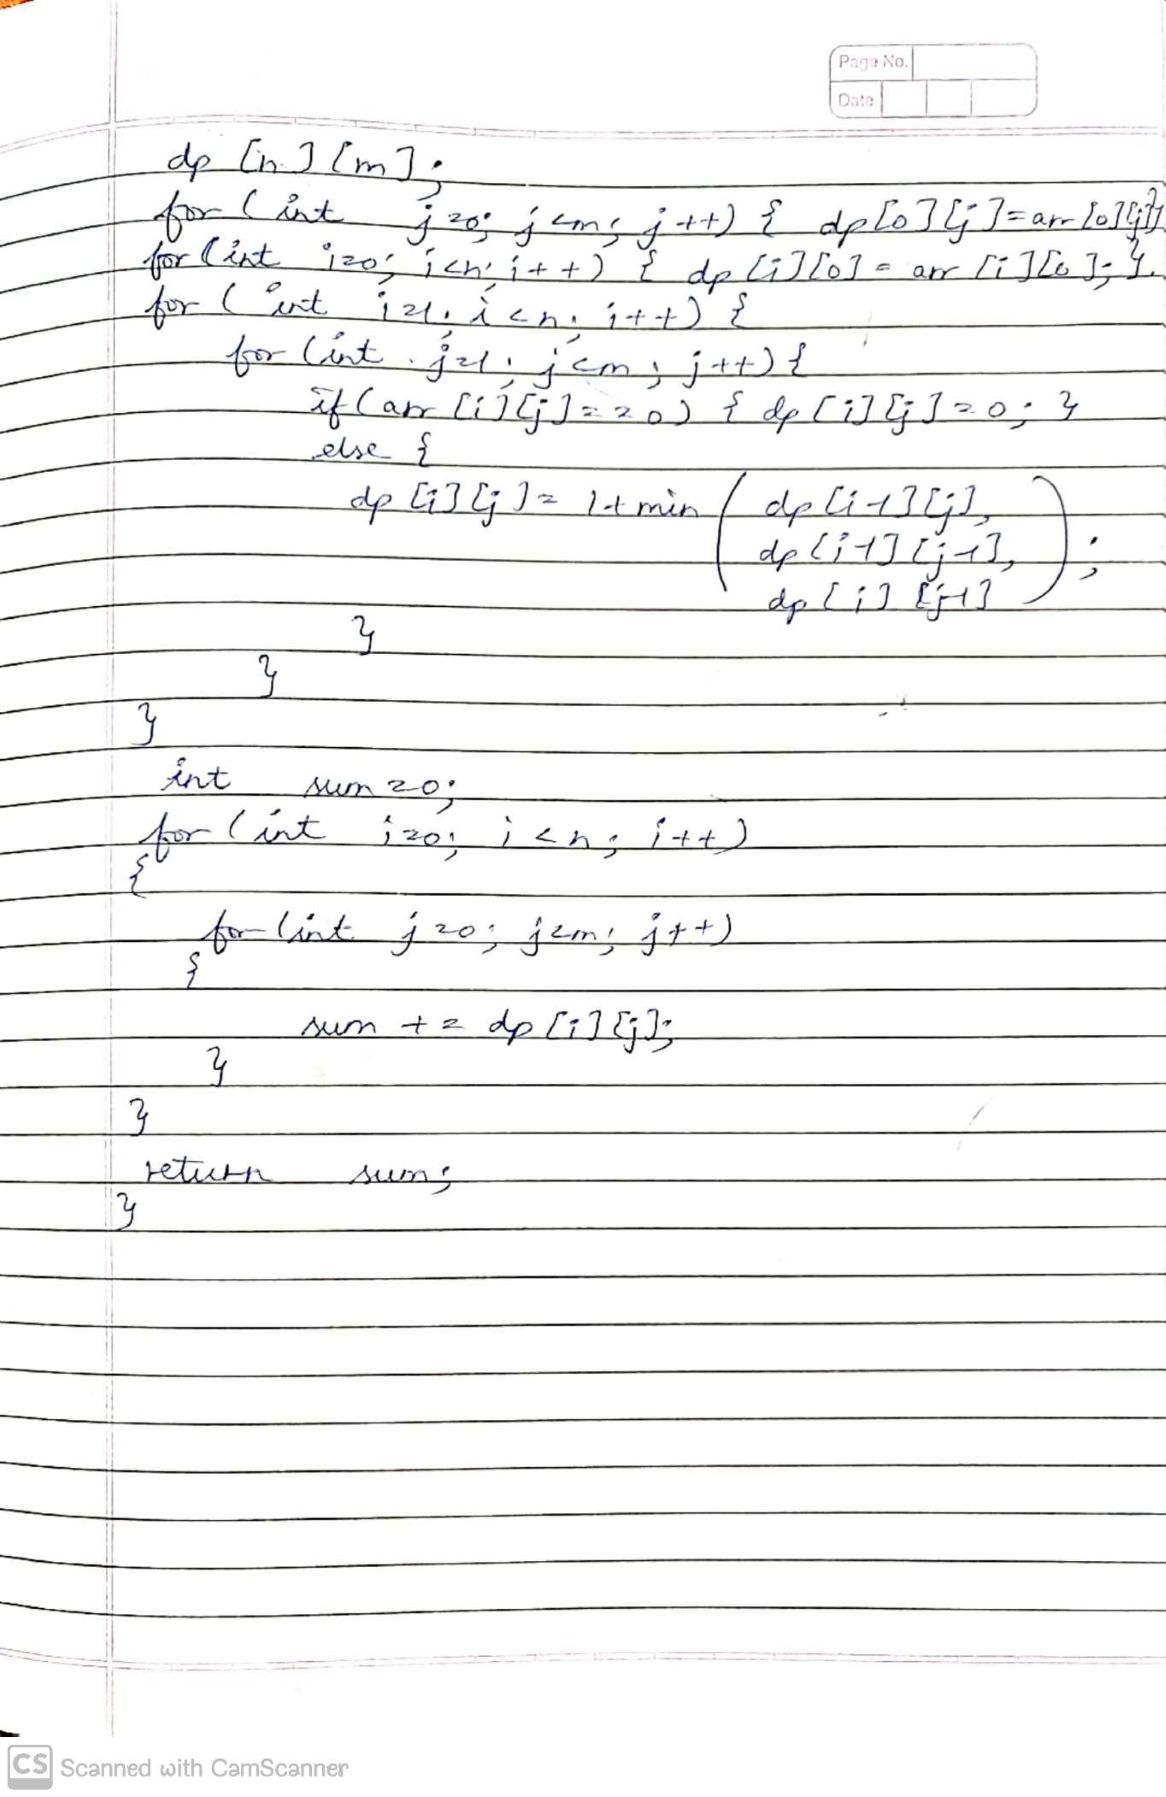 Page No.
Date
dp [n] [m];
for (int j=0; j<m; j++) { dp[0][j]=arr[0][j];}
for (int i=0; i<n; i++) { dp[i][0] = arr[i][0]; }
for (int i=1; i<n; i++) {
for (int j=1; j<m; j++) {
if (arr [i][j]==0) { dp[i][j]=0; }
else {
dp [i][j] = 1+min ( dp[i-1][j],
dp[i-1][j-1],
dp[i][j-1] );
}
}
}
int sum=0;
for (int i=0; i<n; i++)
{
for (int j=0; j<m; j++)
{
sum += dp[i][j];
}
}
return sum;
}
CS Scanned with CamScanner